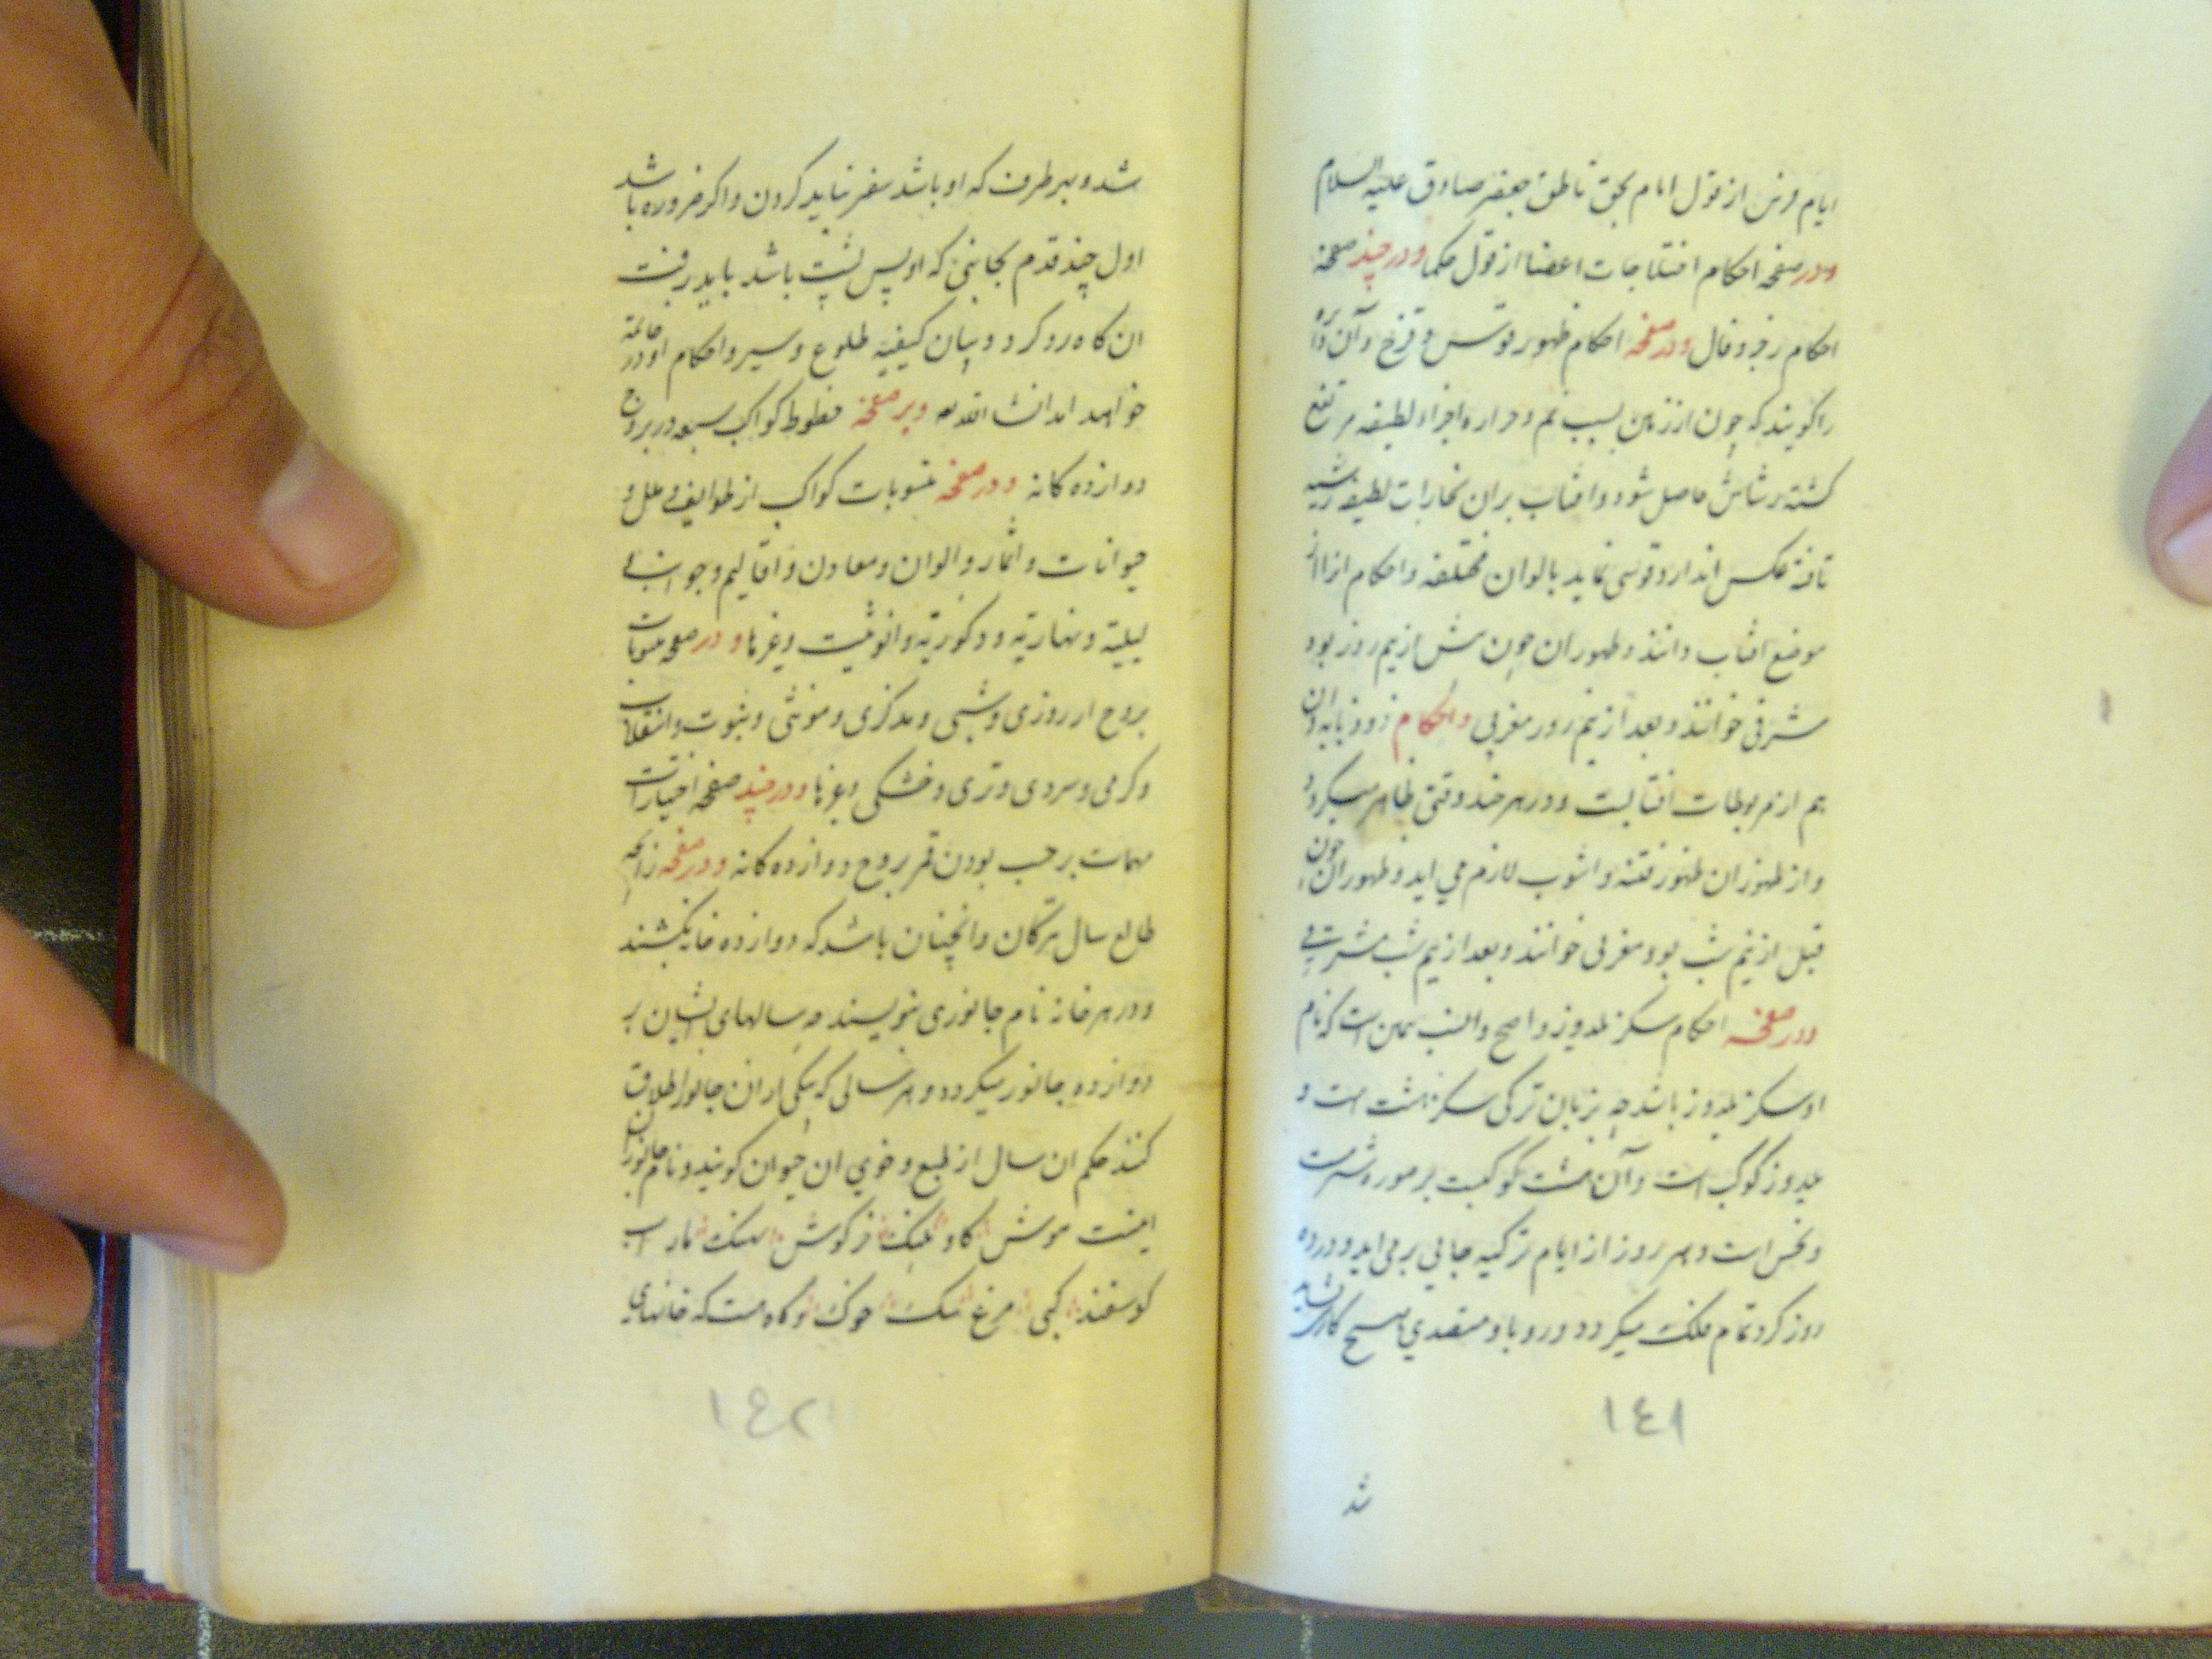 ایام فرس از قول امام بحق ناطق جعفر صادق علیه السلام
و در صفحه احکام اختلاجات اعضا از قول حکما و در چند صفحه
احکام زجر و فال و در صفحه احکام ظهور قوس و قزح و آن دائره
را گویند که چون از زمین بسبب نم و حراره اجزاء لطیفه مرتفع
کشته رشاش حاصل شود و افتاب بران بخارات لطیفه رشیه
تافته عکس اندازد و قوسی نماید بالوان مختلفه و احکام از
موضع افتاب دانند و ظهور ان چون پیش از نیم روز بود
شرقی خوانند و بعد از نیم روز مغربی و احکام ذو ذوابه و ان
هم از مربوطات افتابست و در هر چند وقتی ظاهر میکردد
و از ظهور ان ظهور فتنه و اشوب لازم می اید و ظهور ان چون
قبل از نیم شب بود مغربی خوانند و بعد از نیم شب مشرقی
و در صفحه احکام سکز یلدوز و اصح و انسب همین است که نام
او سکز یلدوز باشد چه بزبان ترکی سکز هشت است و
یلدوز کوکب است و آن هشت کوکبست بر صوره شتر مست
و نحس است و هر روز از ایام ترکیه جایی بر می اید و در ده
روز کرد تمام فلک میکردد و رو با و متصدی هیچ کار نباید
١٤١
شد
شد و بهر طرف که او باشد سفر نباید کردن و اکر ضروره باشد
اول چند قدم بجانبی که او پس پشت باشد باید رفت
ان کاه رو کرد و بیان کیفیه طلوع و سیر و احکام او در خاتمة
خواهد امد انشاء الله و بر صفحه خطوط کواکب سبعه در بروج
دوازده کانه و در صفحه منسوبات کواکب از طوایف و ملل و
حیوانات و اثمار و الوان و معادن و اقالیم و جوانب
لیلیة و نهاریة و ذکوریة و انوثیت و غیرها و در صفحه منسوبات
بروج از روزی و شبی و مذکری و مونثی و ثبوت و انقلاب
و کرمی و سردی و تری و خشکی و غیرها و در چند صفحه اختیارات
مهمات بر حسب بودن قمر بروج دوازده کانه و در صفحه زایجه
طالع سال ترکان و انچنان باشد که دوازده خانه بکشند
و در هر خانه نام جانوری بنویسند چه سالهای ایشان بر
دوازده جانور میکردد و هر سالی که بیکی از ان جانور اطلاق
کنند حکم ان سال از طبع و خوی ان حیوان کویند و نام جانوران
اینست موش کاو پلنک خرکوش نهنک مار اسب
کوسفند کپی مرغ سک خوک و کاه هست که خانهای
١٤٢